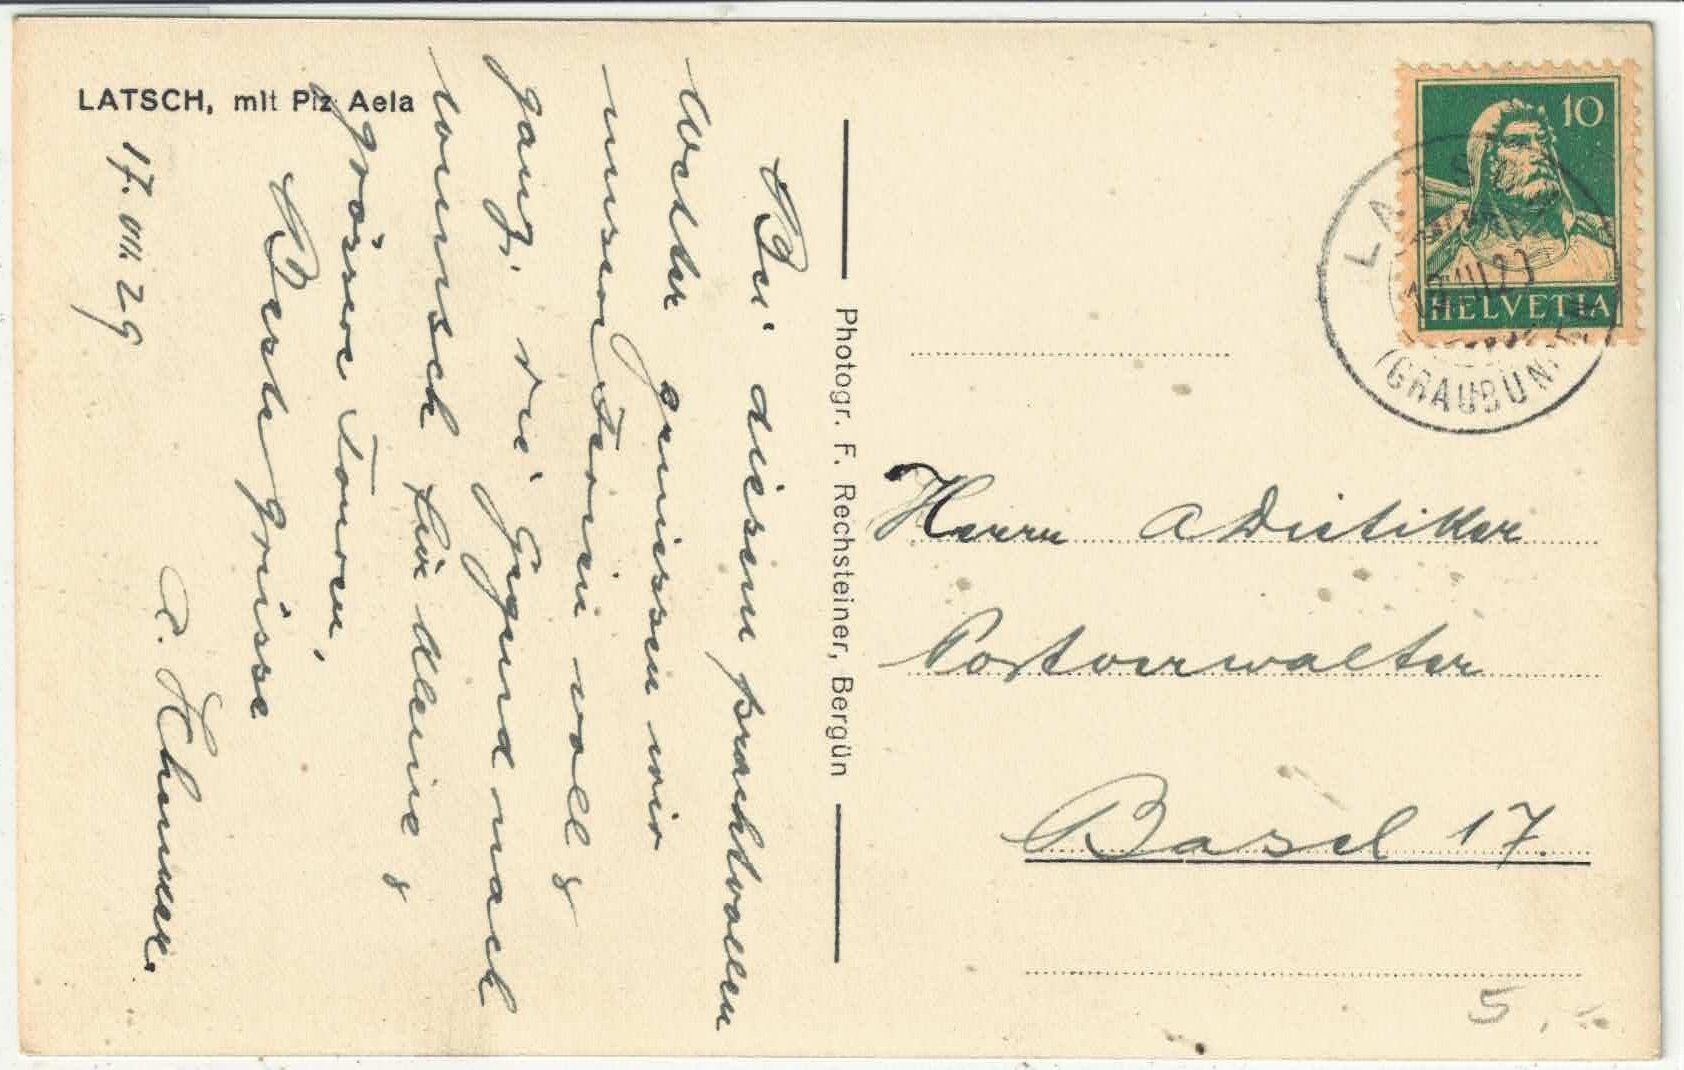 LATSCH, mit Piz Aela
17. VIII. 29
Bei diesem prachtvollen
Wetter geniessen wir
unsere Ferien voll &
ganz, die Gegend nach
Wunsch für kleine &
grössere Touren,
Beste Grüsse
Photogr. F. Rechsteiner, Bergün
10
HELVETIA
LATSCH
(GRAUBÜN)
Herrn A Dietiker
Postverwalter
Basel 17.
5.-